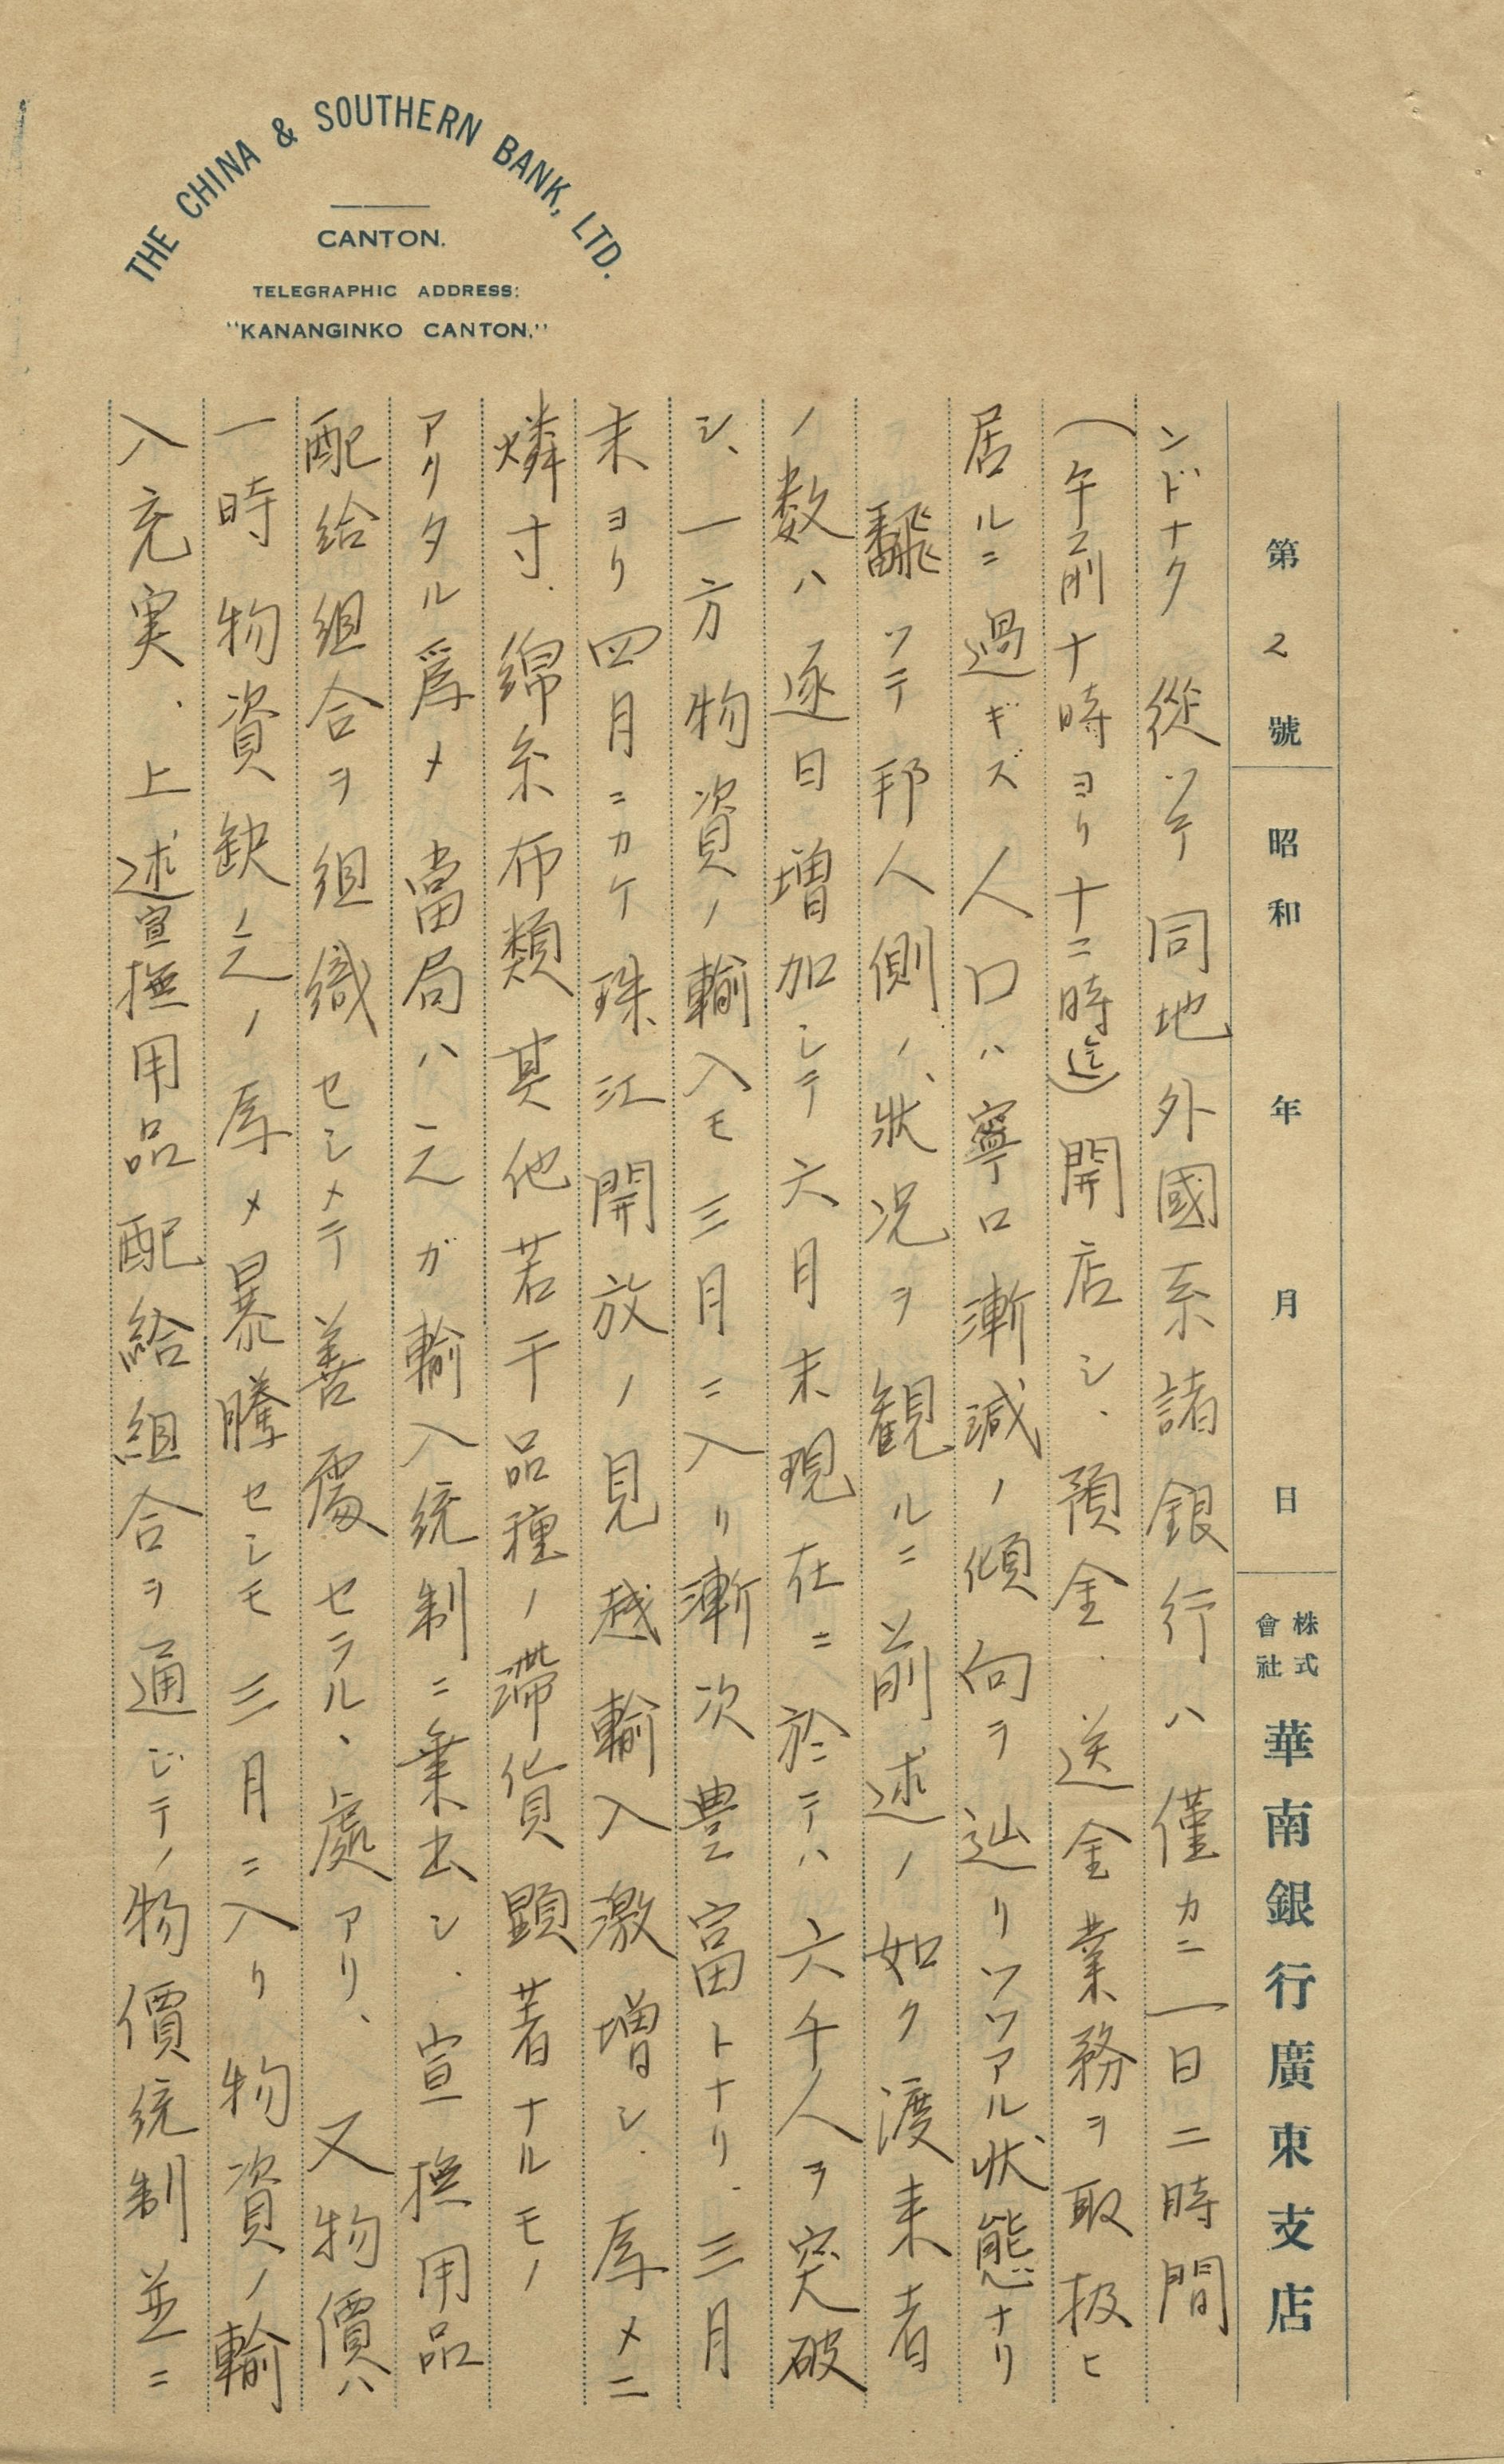 THE CHINA & SOUTHERN BANK, LTD.
CANTON.
TELEGRAPHIC ADDRESS:
"KANANGINKO CANTON."
第 2 號 昭和 年 月 日 株式會社 華南銀行廣東支店
ンドナク從ツテ同地外國系諸銀行ハ僅カニ一日二時間
(午前十時ヨリ十二時迄)開店シ、預金、送金業務ヲ取扱ヒ
居ルニ過ギズ人口ハ寧ロ漸減ノ傾向ヲ辿リツツアル狀態ナリ
飜ツテ邦人側ノ狀況ヲ観ルニ前述ノ如ク渡来者
ノ数ハ逐日増加シテ六月末現在ニ於テハ六千人ヲ突破
シ、一方物資ノ輸入モ三月ニ入リ漸次豊富トナリ、三月
末ヨリ四月ニカケ珠江開放ノ見越輸入激増シ、為メニ
燐寸、綿糸布類其他若干品種ノ滞貨顕著ナルモノ
アリタル爲メ當局ハ之ガ輸入統制ニ乗出シ、宣撫用品
配給組合ヲ組織セシメテ善處セラル、處アリ、又物價ハ
一時物資缺乏ノ為メ暴騰セシモ三月ニ入リ物資ノ輸
入充実、上述宣撫用品配給組合ヲ通ジテノ物價統制並ニ